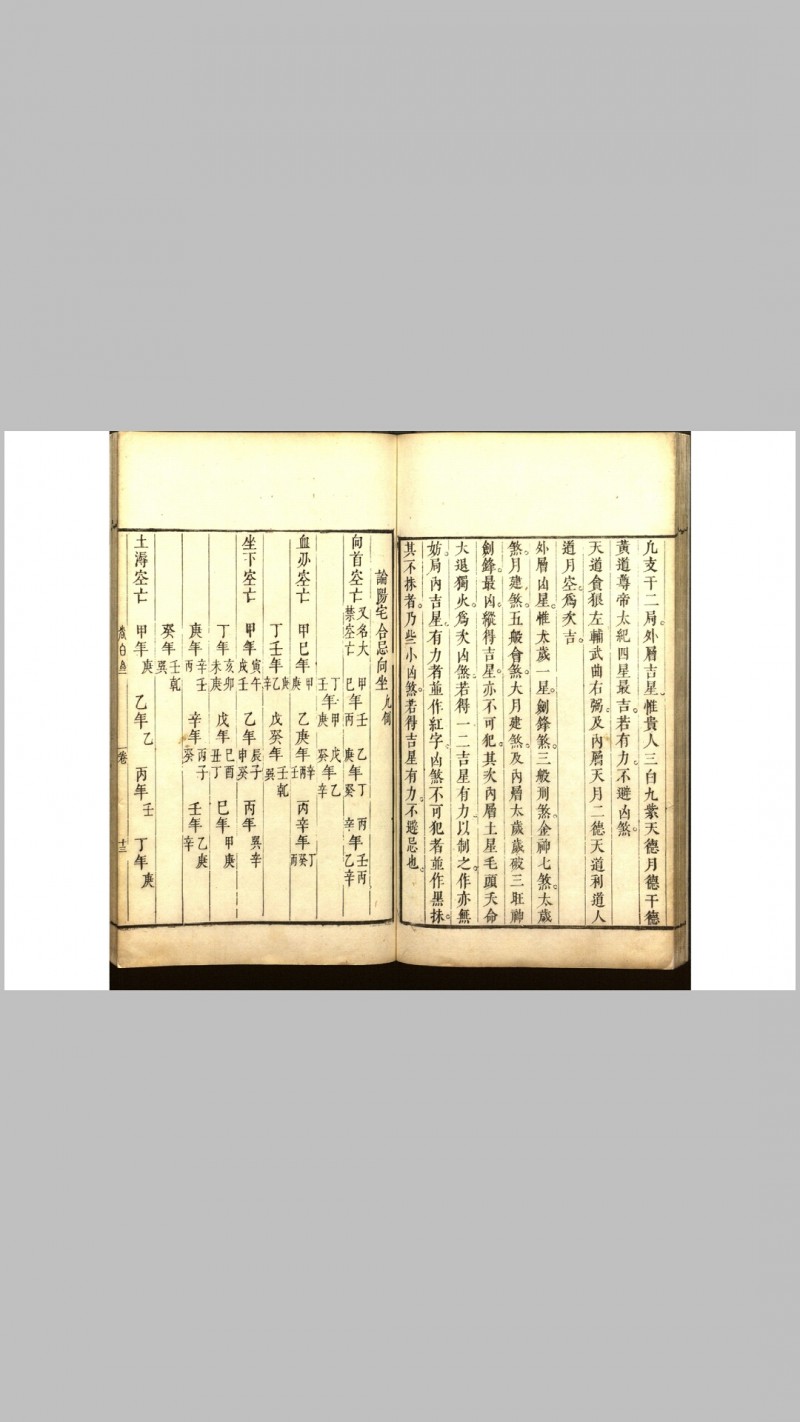 凢支干二局。外層吉星。惟貴人三白九紫天德月德干德
黃道尊帝太紀四星最吉。若有力。不避凶煞。
天道貪狼左輔武曲右弼。及內層天月二德天道利道人
道月空。爲次吉。
外層凶星。惟太歲一星。劍鋒煞。三般刑煞。金神七煞。太歲
煞。月建煞。五般會煞。大月建煞。及內層太歲歲破三旺神
劍鋒。最凶。縱得吉星。亦不可犯。其次內層土星毛頭夭命
大退獨火。爲次凶煞。若得一二吉星有力以制之。作亦無
妨。局內吉星。有力者並作紅字。凶煞不可犯者並作黑抹。
其不抹者。乃些小凶煞。若得吉星有力。不避忌也。
論陽宅合忌向坐九個
向首空亡 又名大禁空亡 甲己年 壬丙 乙庚年 丁癸 丙辛年 壬丙乙辛
丁壬年 甲庚 戊癸年 乙辛
血刃空亡 甲巳年 甲庚 乙庚年 辛丙壬 丙辛年 丁癸丙
丁壬年 庚乙辛 戊癸年 壬乾巽
坐下空亡 甲年 寅午戌壬 乙年 辰子申癸 丙年 巽辛
丁年 亥卯未庚 戊年 巳酉丑丁 巳年 甲庚
庚年 辛壬丙 辛年 丙子癸 壬年 乙庚辛
癸年 壬乾巽
土溽空亡 甲年 庚 乙年 乙 丙年 壬 丁年 庚
卷 十三